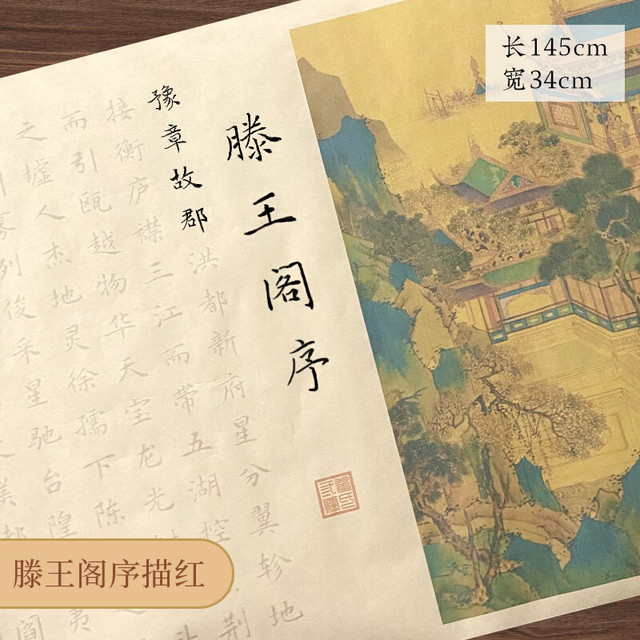 长145cm
宽34cm
滕王阁序
豫章故郡洪都新府星分翼轸地
接衡庐襟三江而带五湖控
荆
而引瓯越物华天宝龙光
之墟人杰地灵徐孺下陈
列俊采星驰台隍
夷
美
滕王阁序描红